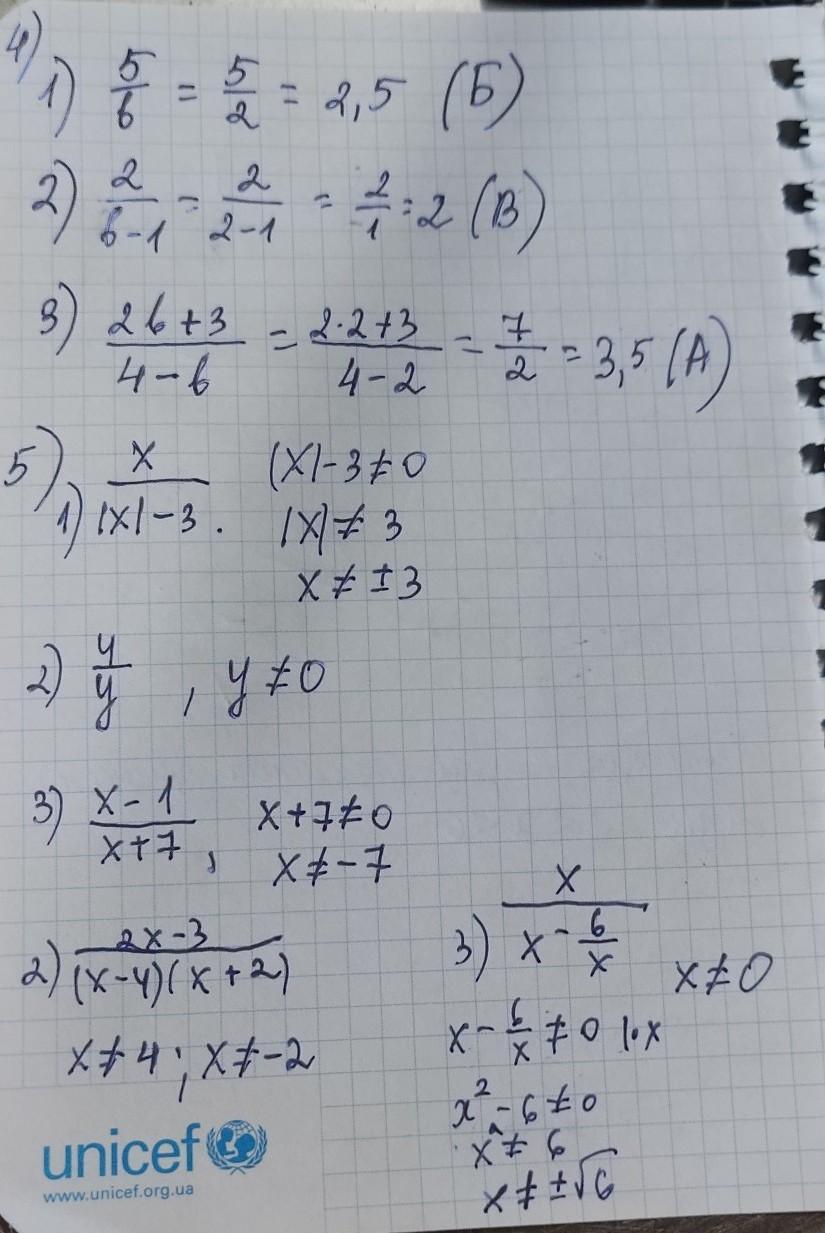 4)
1) 5/b = 5/2 = 2,5 (Б)
2) 2/(b-1) = 2/(2-1) = 2/1 = 2 (В)
3) (2b+3)/(4-b) = (2·2+3)/(4-2) = 7/2 = 3,5 (А)
5)
1) x/(|x|-3). |x|-3≠0
|x|≠3
x≠±3
2) y/y, y≠0
3) (x-1)/(x+7), x+7≠0
x≠-7
2) (2x-3)/((x-4)(x+2))
x≠4; x≠-2
3) x/(x-6/x) x≠0
x-6/x≠0 |·x
x²-6≠0
x²≠6
x≠±√6
unicef
www.unicef.org.ua